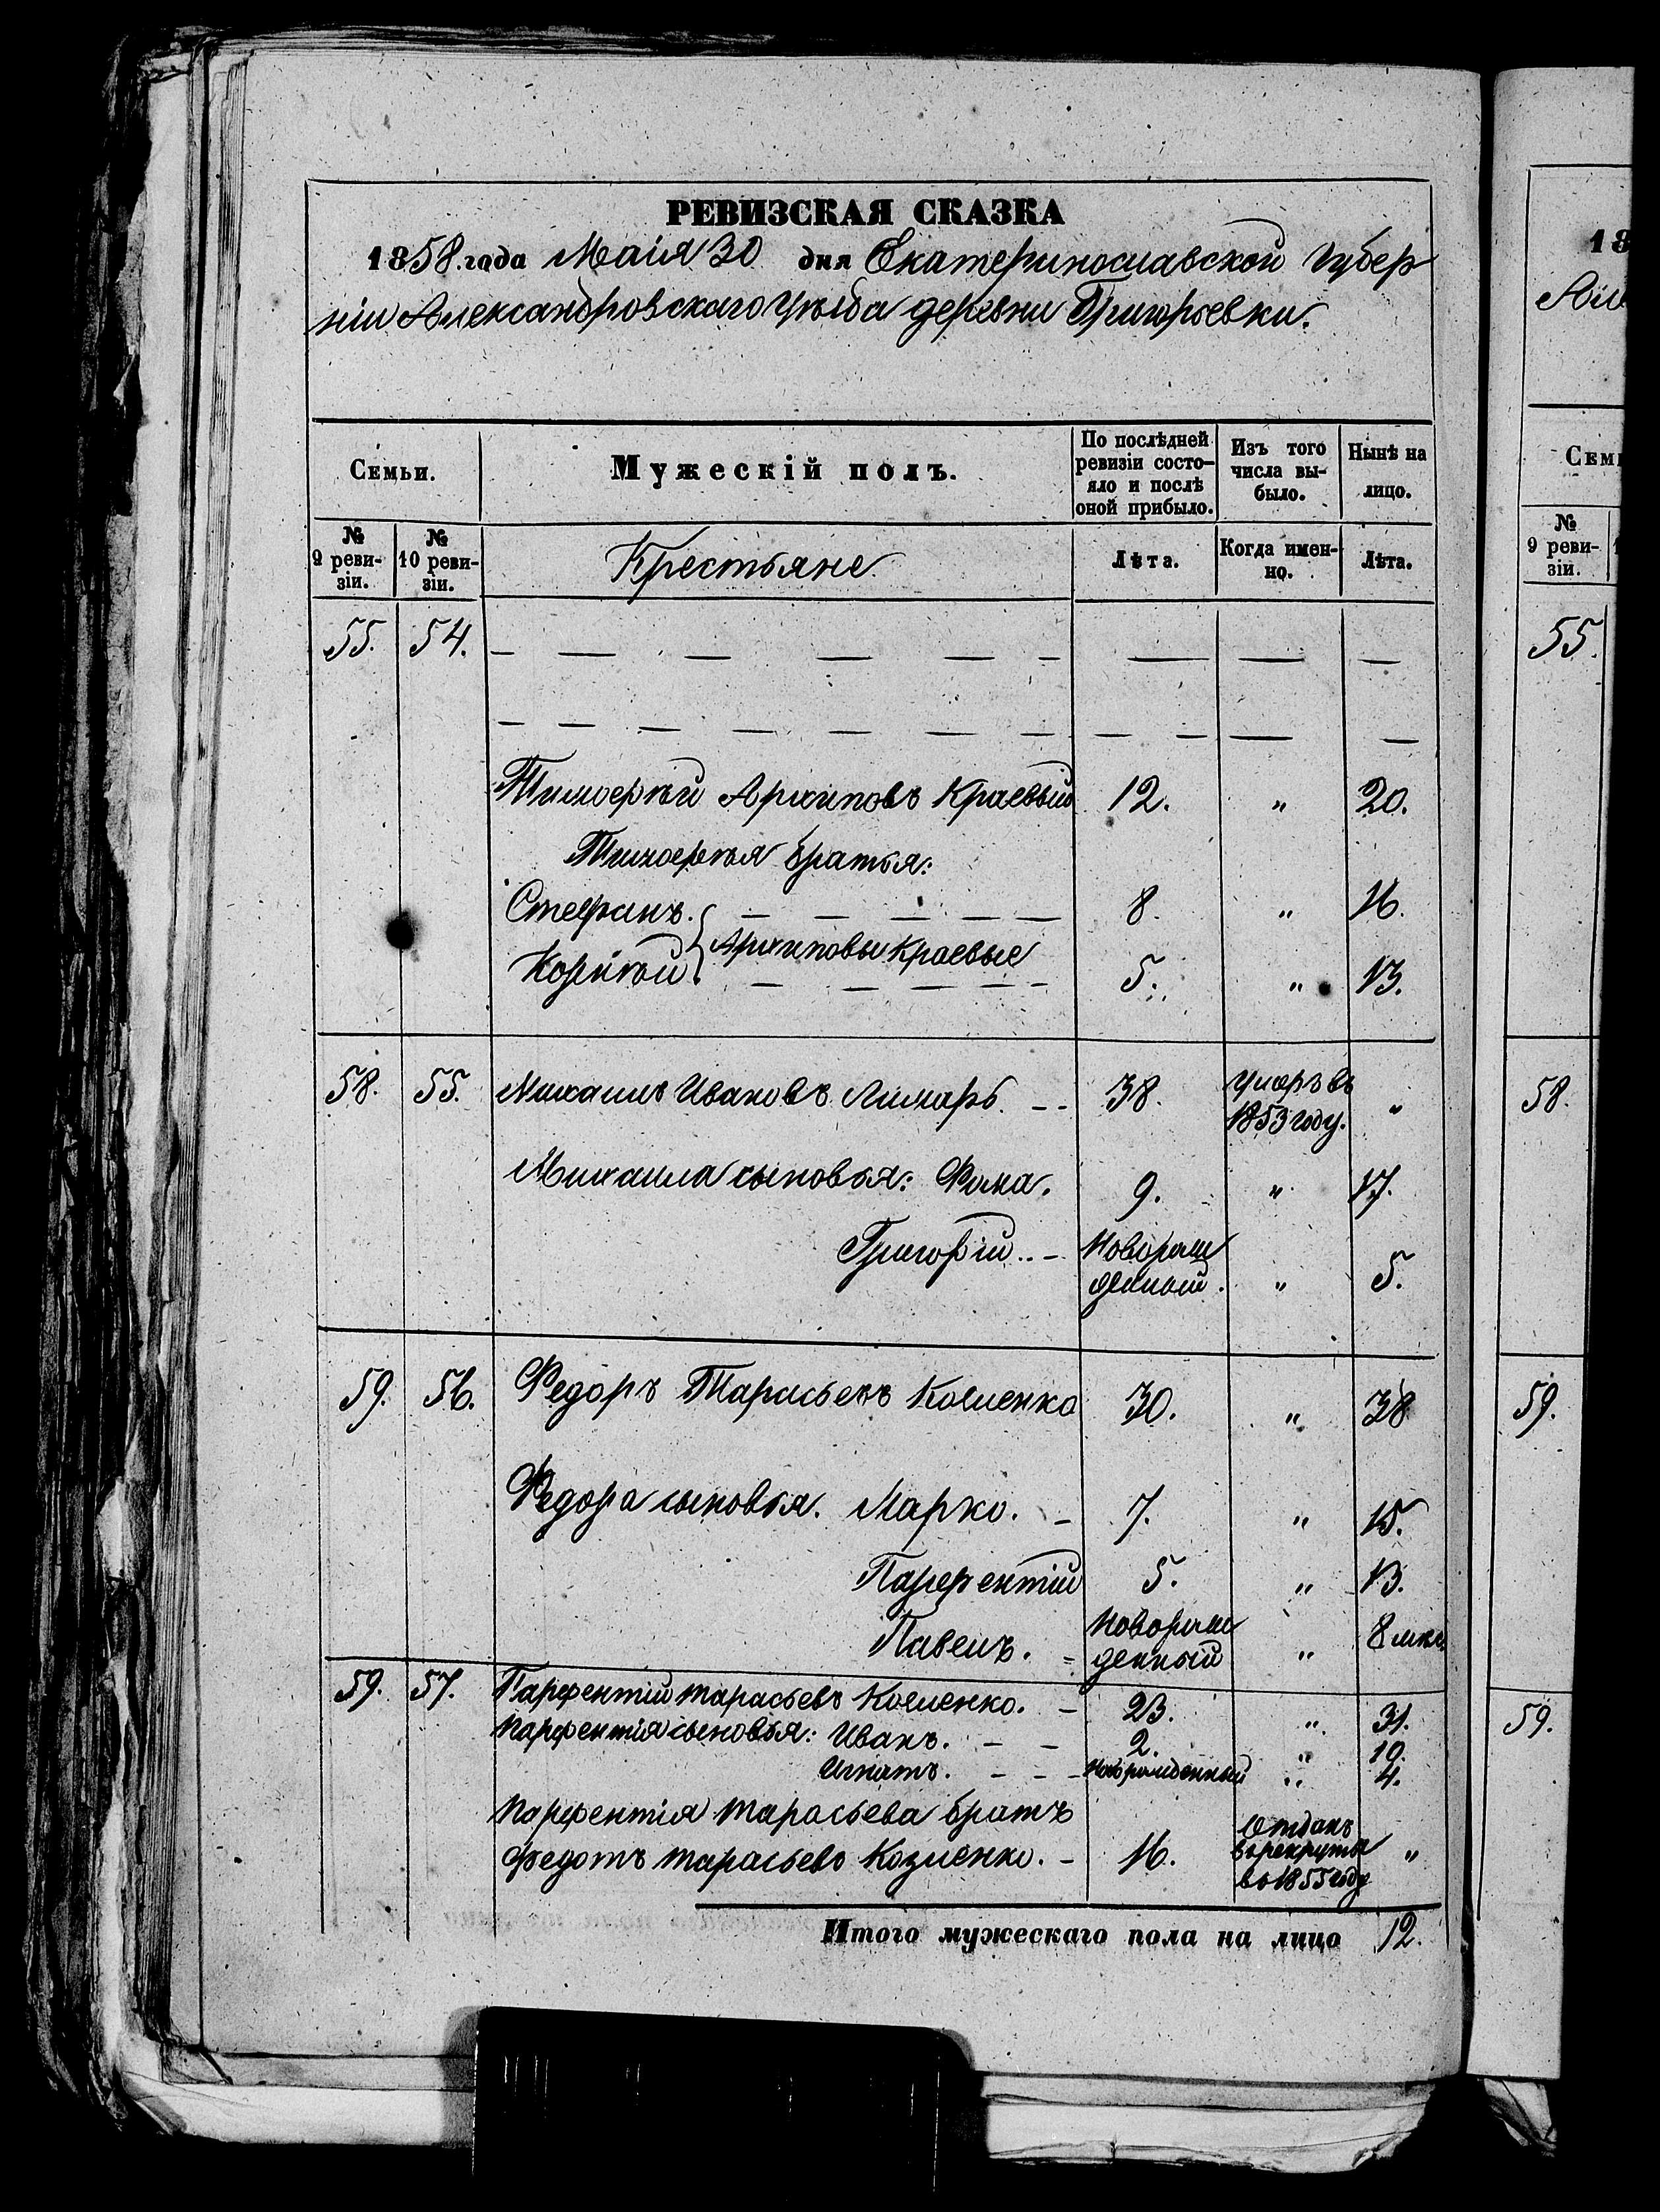 РЕВИЗСКАЯ СКАЗКА
1858 года Маія 30 дня Екатеринославской Губер
ніи Александровскаго Уѣзда деревни Григорьевки.
Семьи.
Мужескій полъ.
По послѣдней ревизіи состо-яло и послѣ оной прибыло.
Изъ того числа вы-было.
Нынѣ на лицо.
№ 9 реви-зіи.
№ 10 реви-зіи.
Крестьяне.
Лѣта.
Когда имен-но.
Лѣта.
55. 54. — — — — — — — — —
— — — — — — — — — — —
Тимофѣй Архиповъ Краевый 12. " 20.
Тимофѣя братья:
Стефанъ. — — — — — 8. " 16.
Архиповы Краевые
Корнѣй — — — — — 5. " 13.
58. 55. Михаилъ Ивановъ Лимарь. - - 38. Умеръ въ 1853 году. "
Михаила сыновья: Фома. 9. " 17.
Григорій. - Новорож денный. " 5.
59. 56. Федоръ Тарасьевъ Козленко 30. " 38
Федора сыновья. Марко. - 7. " 15.
Парфентій 5. " 13.
Павелъ. - Новорож денный " 8 мѣс.
59. 57. Парфентій Тарасьевъ Козленко. - 23. " 31.
Парфентія сыновья: Иванъ. - - 2. " 10.
Игнатъ. - - - Новорожденный " 4.
Парфентія Тарасьева братъ
Федотъ Тарасьевъ Козленко. - 16. Отданъ въ рекруты въ 1855 году "
Итого мужескаго пола на лицо 12.
18
55.
Семь
№ 9 реви-зіи.
58.
59.
59.